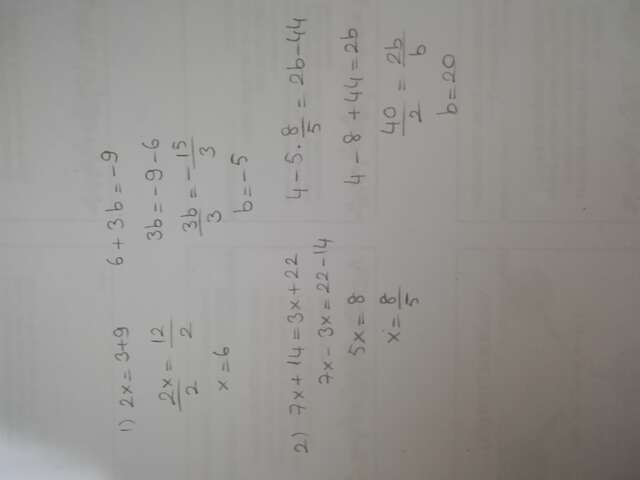 1) 2x = 3+9
2x/2 = 12/2
x = 6
6 + 3b = -9
3b = -9 - 6
3b/3 = -15/3
b = -5
2) 7x + 14 = 3x + 22
7x - 3x = 22 - 14
5x = 8
x = 8/5
4 - 5 · 8/5 = 2b - 44
4 - 8 + 44 = 2b
40/2 = 2b/b
b = 20